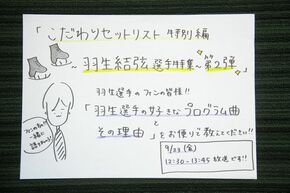 「こだわりセットリスト 特別編
〜羽生結弦選手特集〜第2弾」
羽生選手の ファンの皆様!!
「羽生選手の好きなプログラム曲
と
その理由」をお便りで教えてください!!
9/23(金)
12:30-13:45 放送です!!
ファンの私が
一緒に